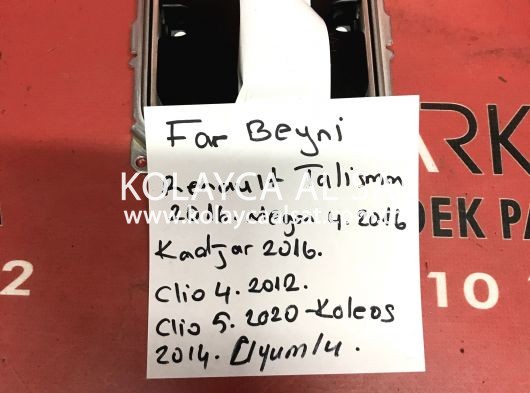 Far Beyni
Renault Talisman
2016. Megan 4. 2016
Kadjar 2016.
Clio 4. 2012.
Clio 5. 2020-Koleos
2014. Uyumlu.
KOLAYCA AL
www.kolaycaalsat
ARK
DEK PA
2
10